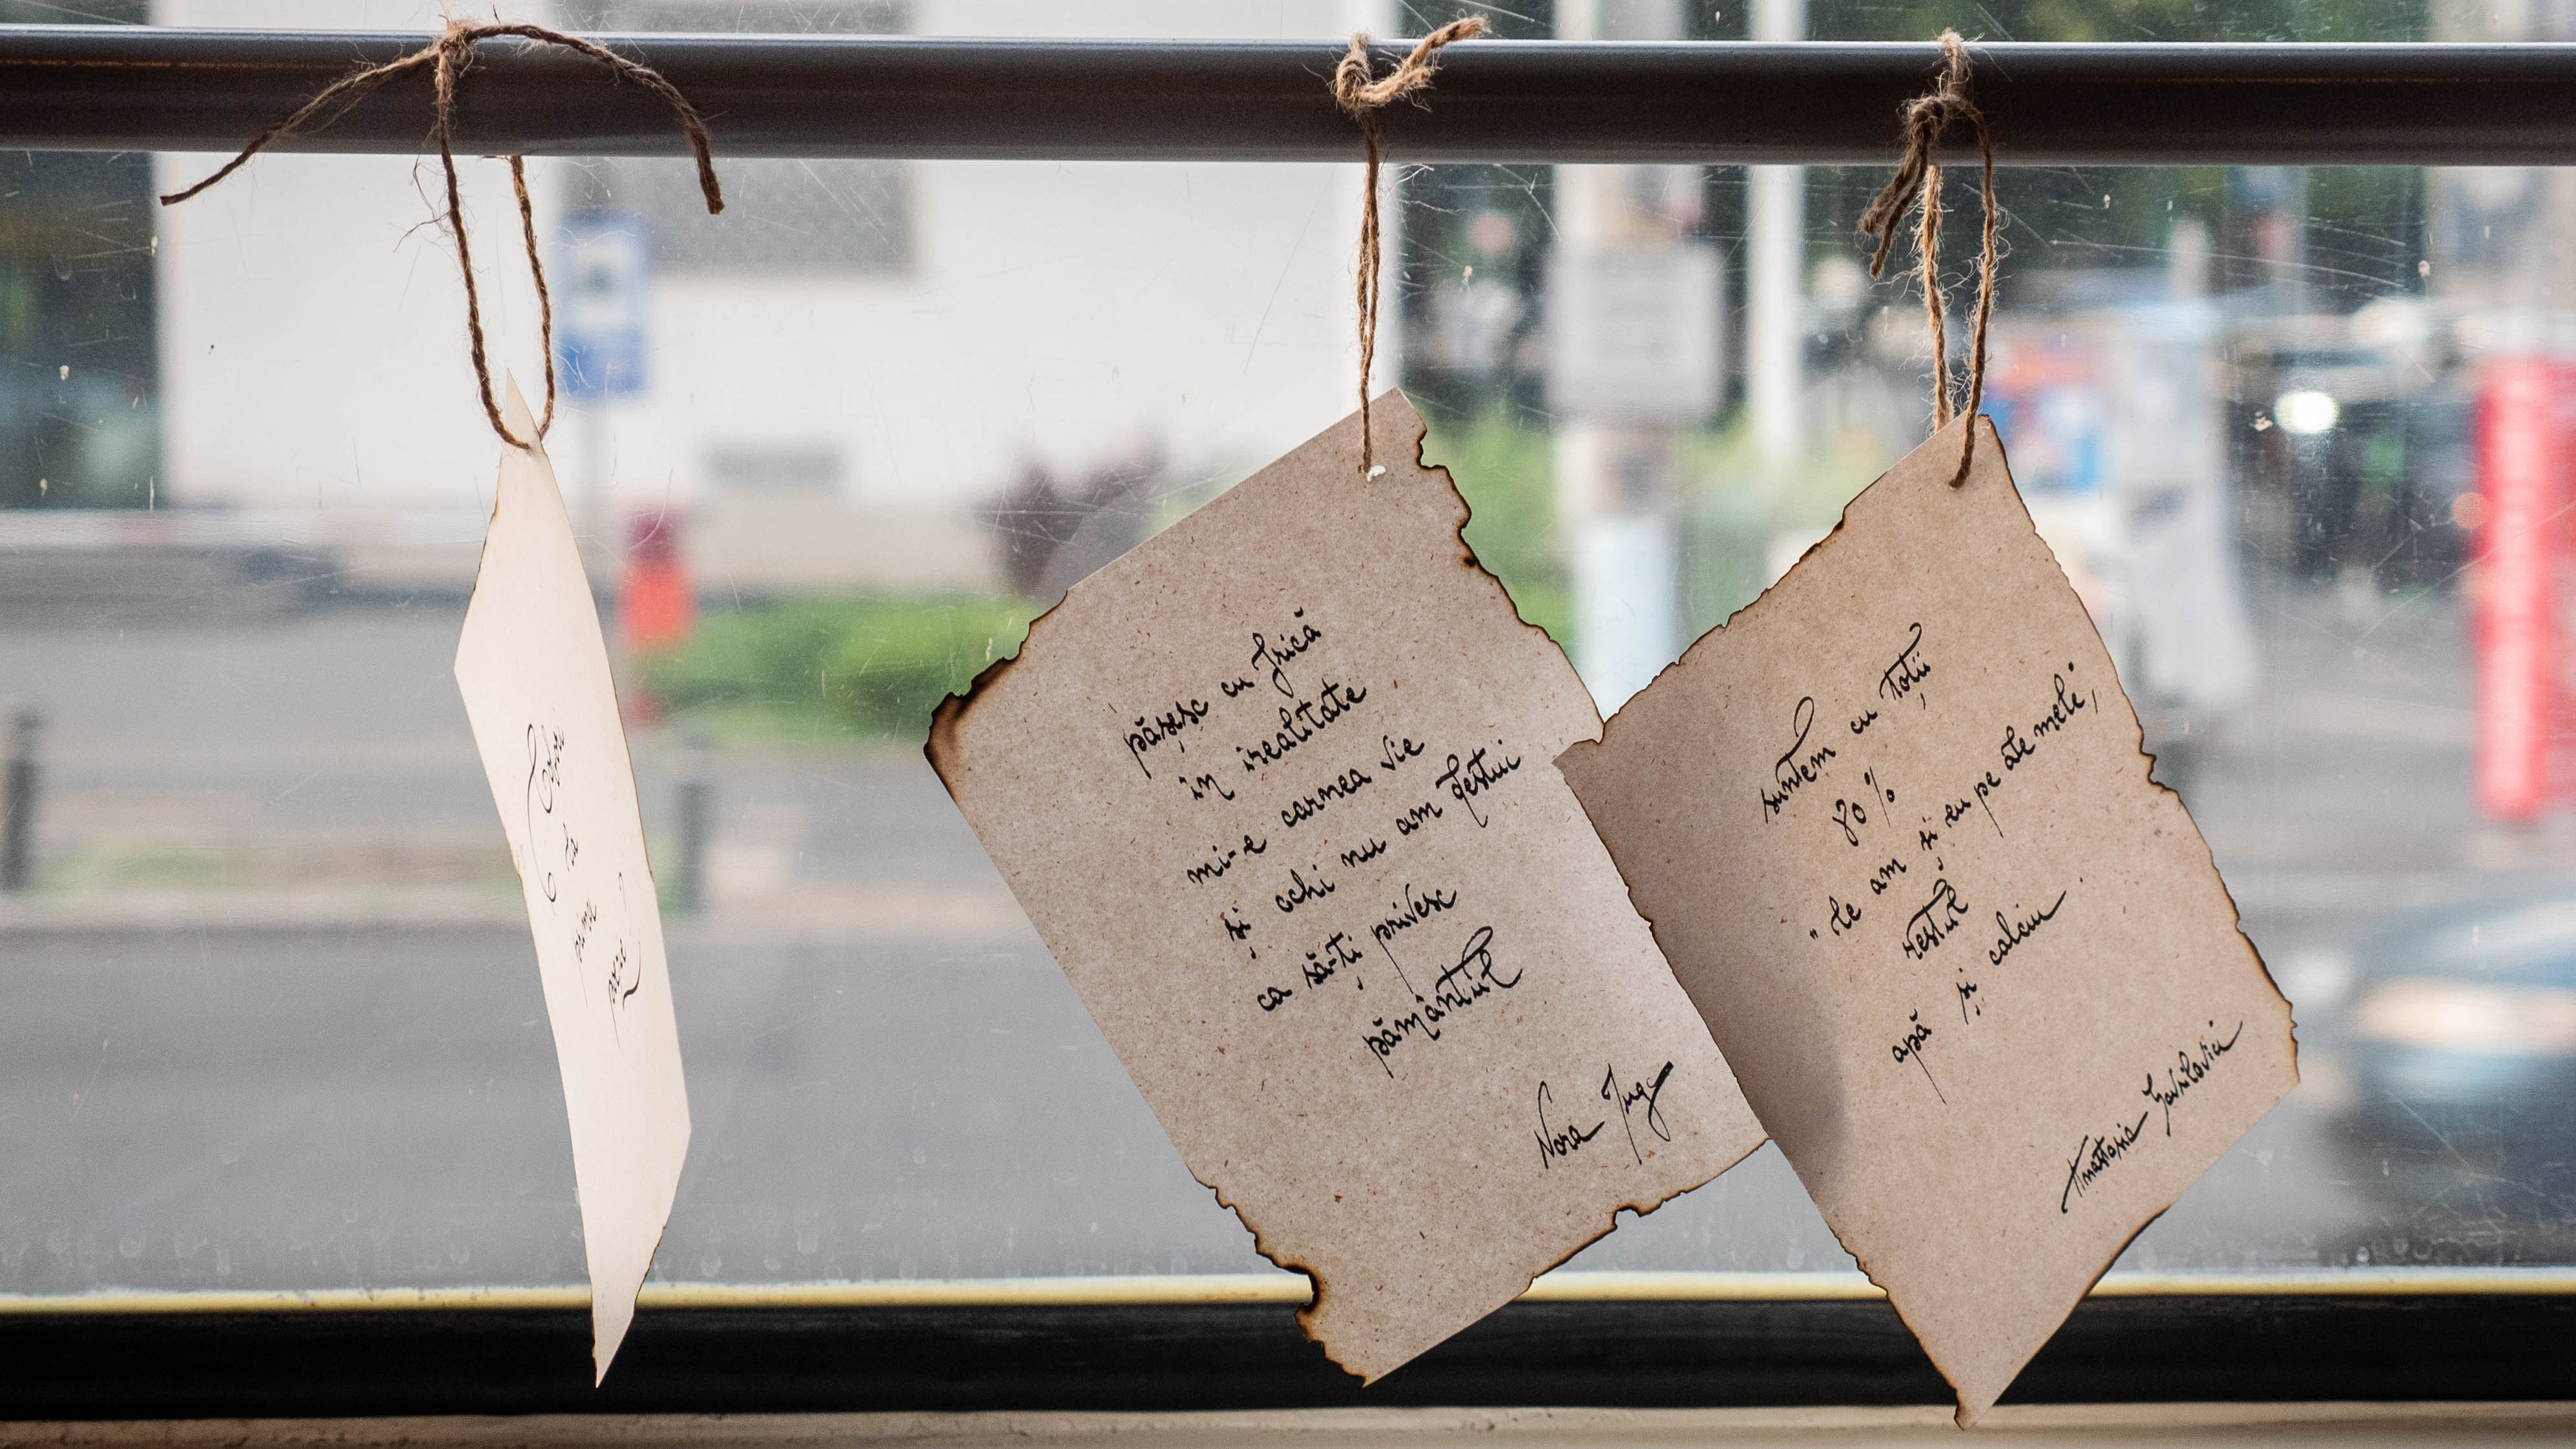 pășesc cu frică
in irealitate
mi-e carnea vie
și ochi nu am destui
ca să-ți privesc
pământul
Nora Iuga
suntem cu toții
80%
"le am și eu pe ale mele",
restul
apă și calciu.
Anastasia Gavrilovici